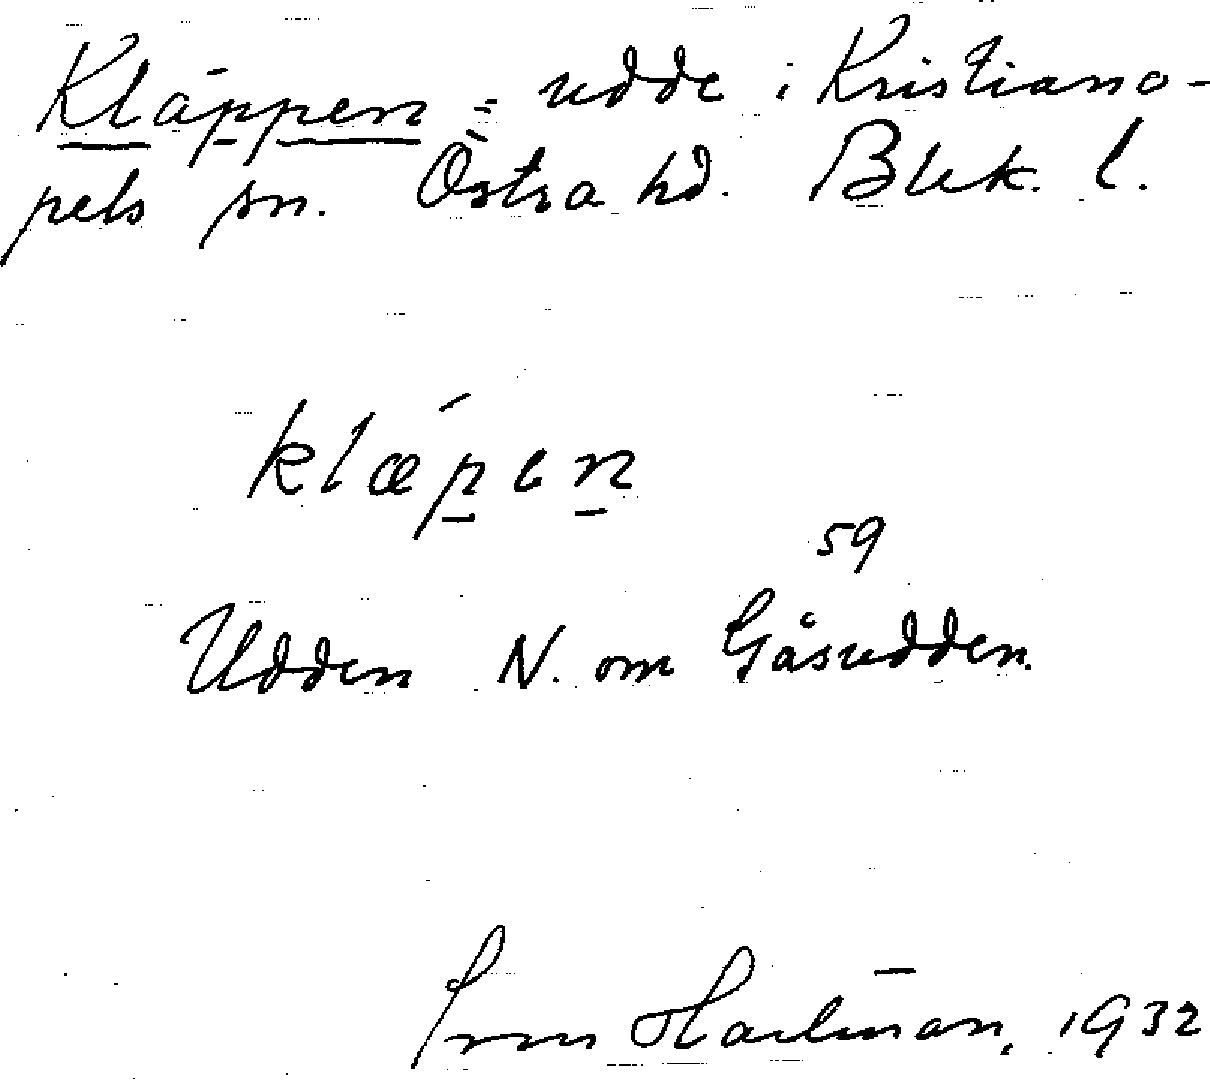 Kläppen = udde i Kristiano-
pels sn. Östra hd. Blek. l.
klǽpen
59
Udden N. om Gåsudden.
Hartman, 1932